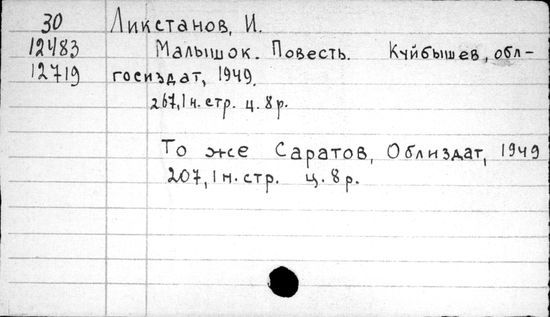 30 Ликстанов, И.
12483 Малышок. Повесть. Куйбышев, обл-
12719 госиздат, 1949.
267, 1 н. стр. ц. 8 р.
То же Саратов, Облиздат, 1949
207, 1 н. стр. ц. 8 р.